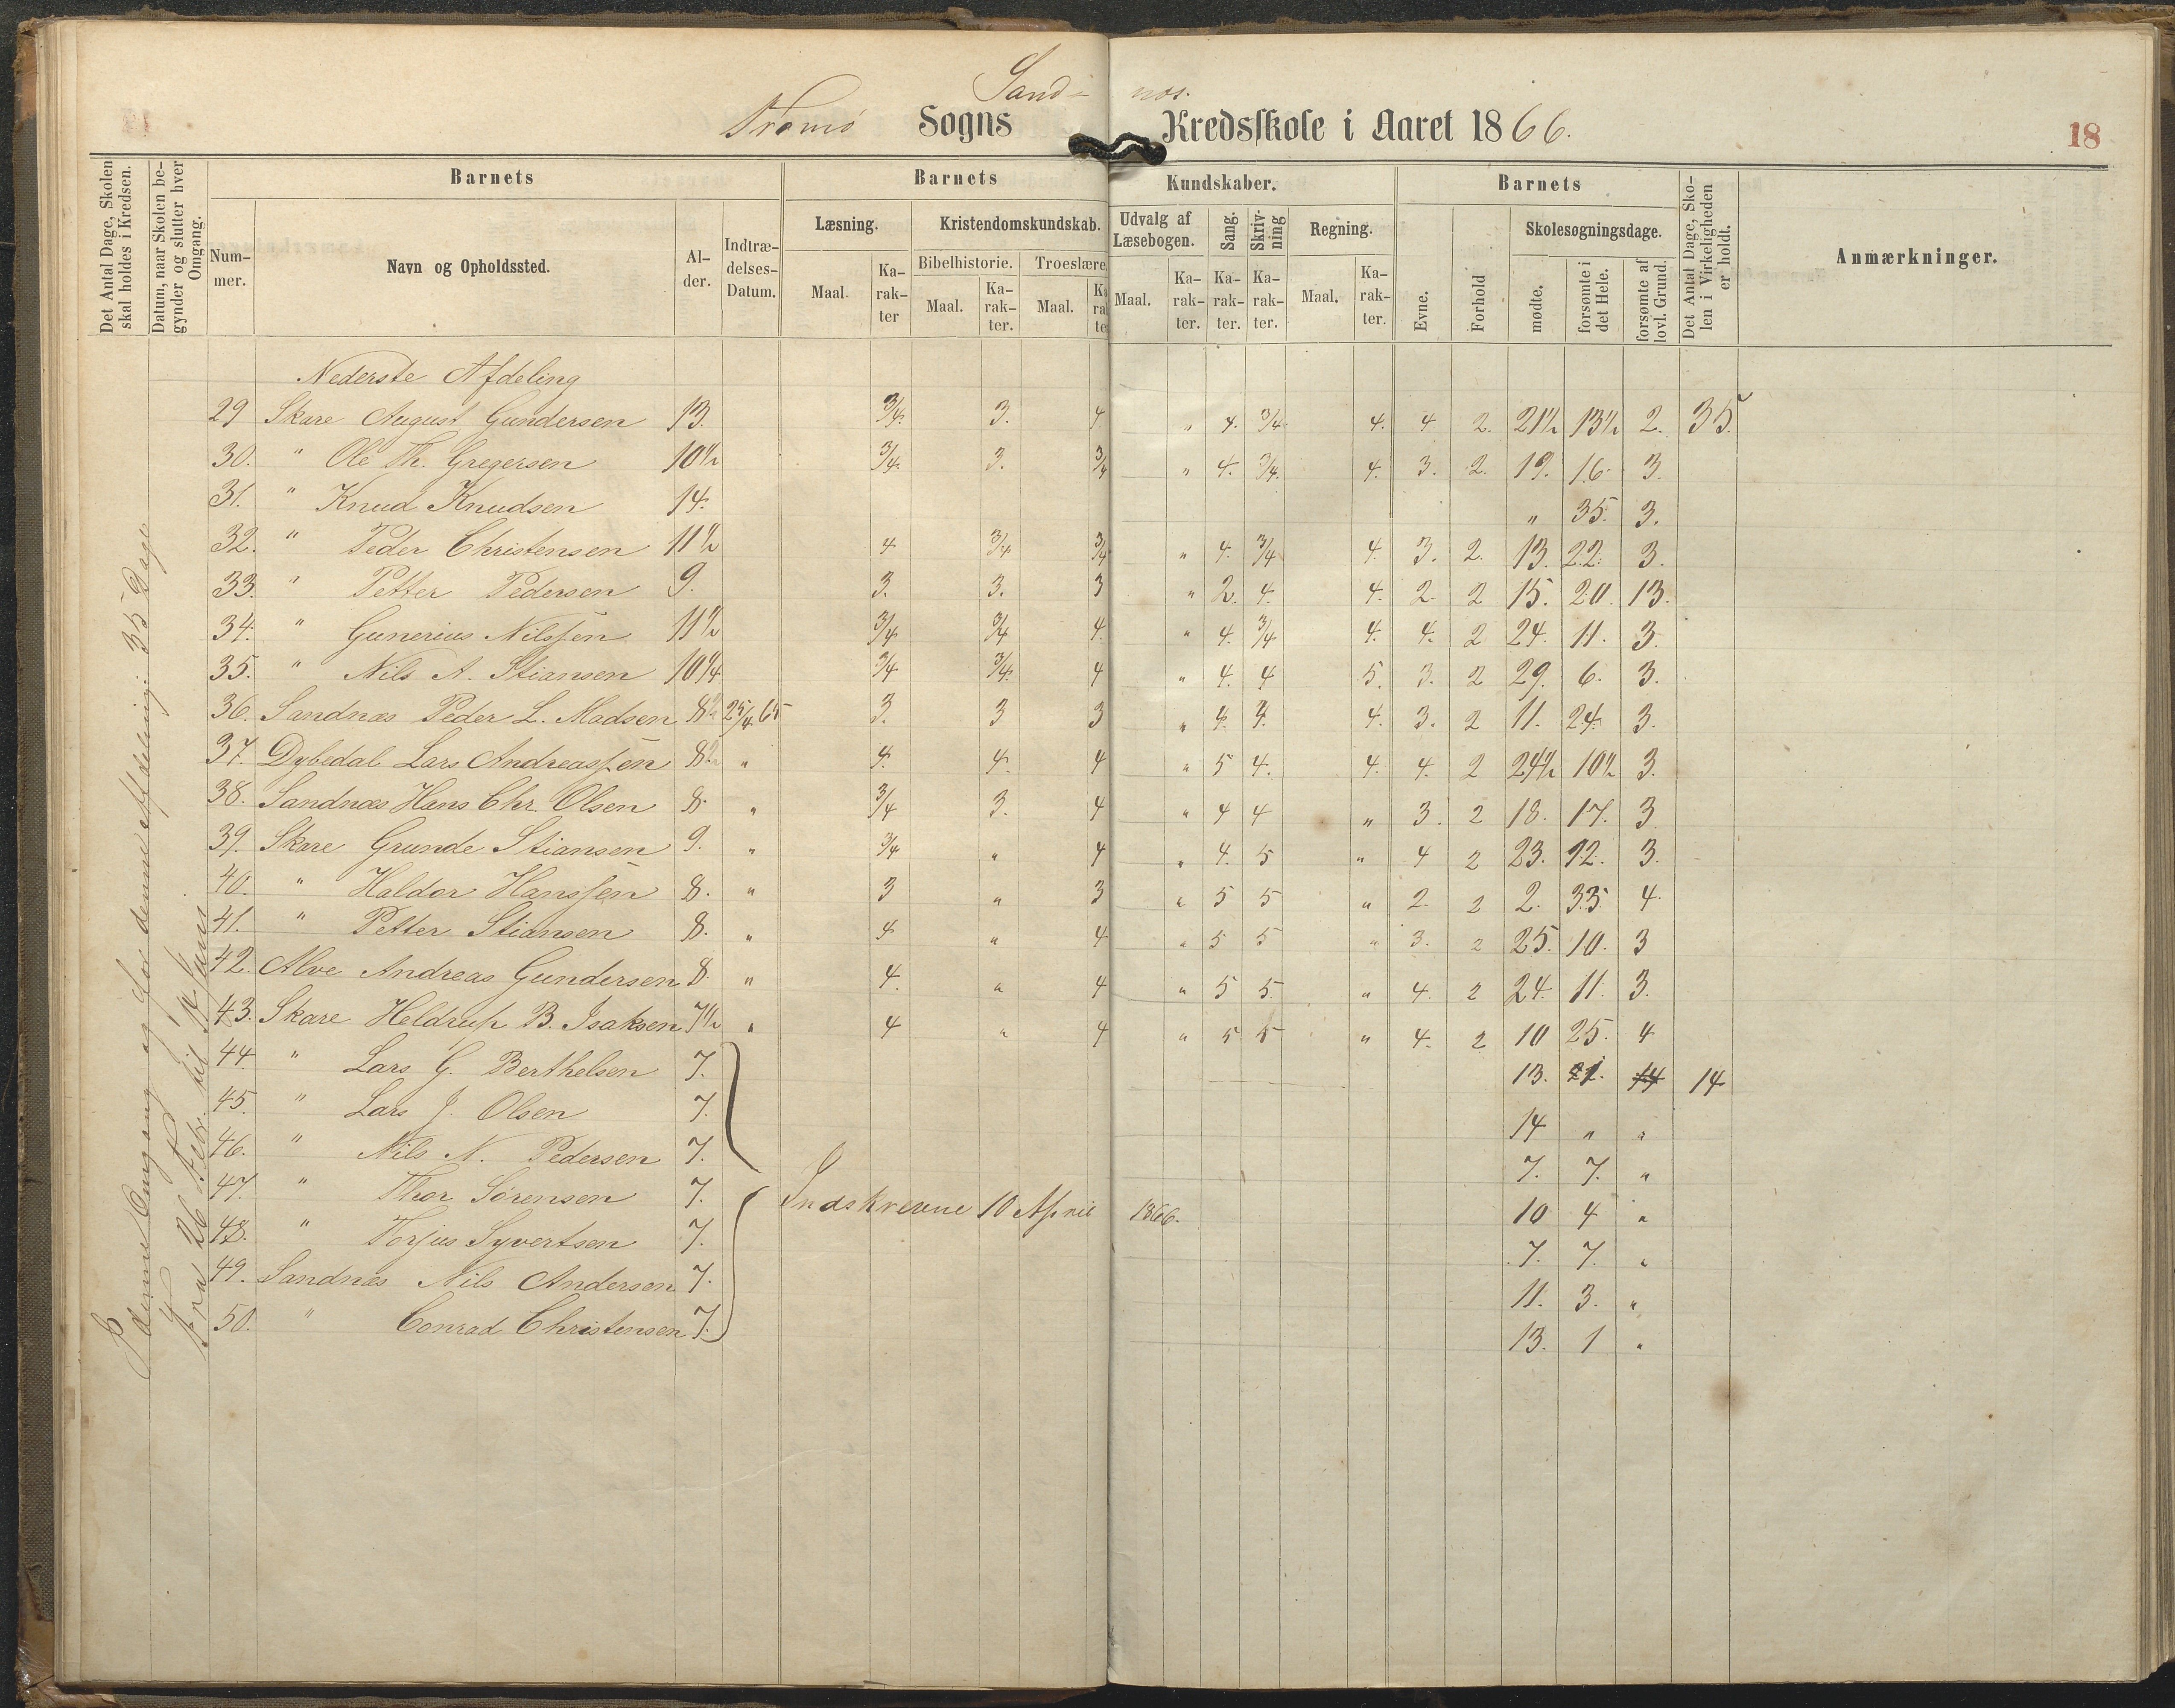 Sand- næs.
Tromø Sogns Kredsskole i Aaret 1866.
18
Det Antal Dage, Skolen skal holdes i Kredsen.
Datum, naar Skolen begynder og slutter hver Omgang.
Barnets
Nummer.
Navn og Opholdssted.
Alder.
Indtrædelses-Datum.
Barnets Kundskaber.
Læsning.
Maal. Karakter
Kristendomskundskab.
Bibelhistorie. Troeslære.
Maal. Karakter. Maal. Karakter
Udvalg af Læsebogen.
Maal. Karakter.
Sang. Karakter.
Skrivning Karakter.
Regning.
Maal. Karakter.
Barnets
Evne. Forhold
Skolesøgningsdage.
mødte. forsømte i det Hele. forsømte af lovl. Grund.
Det Antal Dage, Skolen i Virkeligheden er holdt.
Anmærkninger.
denne Omgang og for denne Afdeling: 35 Dage
Fra 26 Febr. til
Nederste Afdeling
29 Skare August Gundersen 13. 3/4. 3. 4 " 4. 3/4. 4. 4 2. 21½ 13½ 2. 35.
30. " Ole Th. Gregersen 10½ 3/4. 3. 3/4 " 4. 3/4. 4. 3. 2. 19. 16. 3.
31. " Knud Knudsen 14. " 35. 3.
32. " Peder Christensen 11½ 4 3/4 3/4 " 4. 3/4 4. 3. 2. 13. 22. 3.
33. " Petter Pedersen 9. 3. 3. 3 " 2. 4. 4. 2. 2 15. 20. 13.
34. " Gunerius Nilssen 11½ 3/4 3/4 4. " 4. 3/4 4. 4. 2 24. 11. 3.
35. " Nils A. Stiansen 10¼ 3/4 3/4. 4 " 4. 4 5. 3. 2 29. 6. 3.
36. Sandnæs Peder L. Madsen 8½ 25/4 65 3. 3 3 " 4. 4. 4. 3. 2 11. 24. 3.
37. Dybedal Lars Andreassen 8½ " 4. 4. 4 " 5 4. 4. 4. 2 24½ 10½ 3.
38. Sandnæs Hans Chr. Olsen 8. " 3/4 3. 4 " 4 4 " 3. 2 18. 17. 3
39. Skare Grunde Stiansen 9. " 3/4 " 4 " 4. 5 " 4 2 23. 12. 3.
40. " Haldor Hanssen 8. " 3 " 3 " 5 5 " 2. 2 2. 33. 4.
41. " Petter Stiansen 8. " 4 " 4 " 5 5 " 3. 2 25. 10. 3
42. Alve Andreas Gundersen 8. " 4. " 4 " 5 5. " 4. 2 24. 11. 3.
43. Skare Heldrup B. Isaksen 7½ " 4 " 4 " 5 5 " 4. 2 10 25. 4
44. " Lars G. Berthelsen 7. 13. 1. 14 14
45. " Lars J. Olsen 7. 14 " "
46. " Nils N. Pedersen 7. 7. 7. "
47. " Thor Sørensen 7. Indskrevne 10 April 1866. 10 4 "
48. " Torjus Syvertsen 7. 7. 7. "
49. Sandnæs Nils Andersen 7. 11. 3. "
50. " Conrad Christensen 7. 13. 1 "